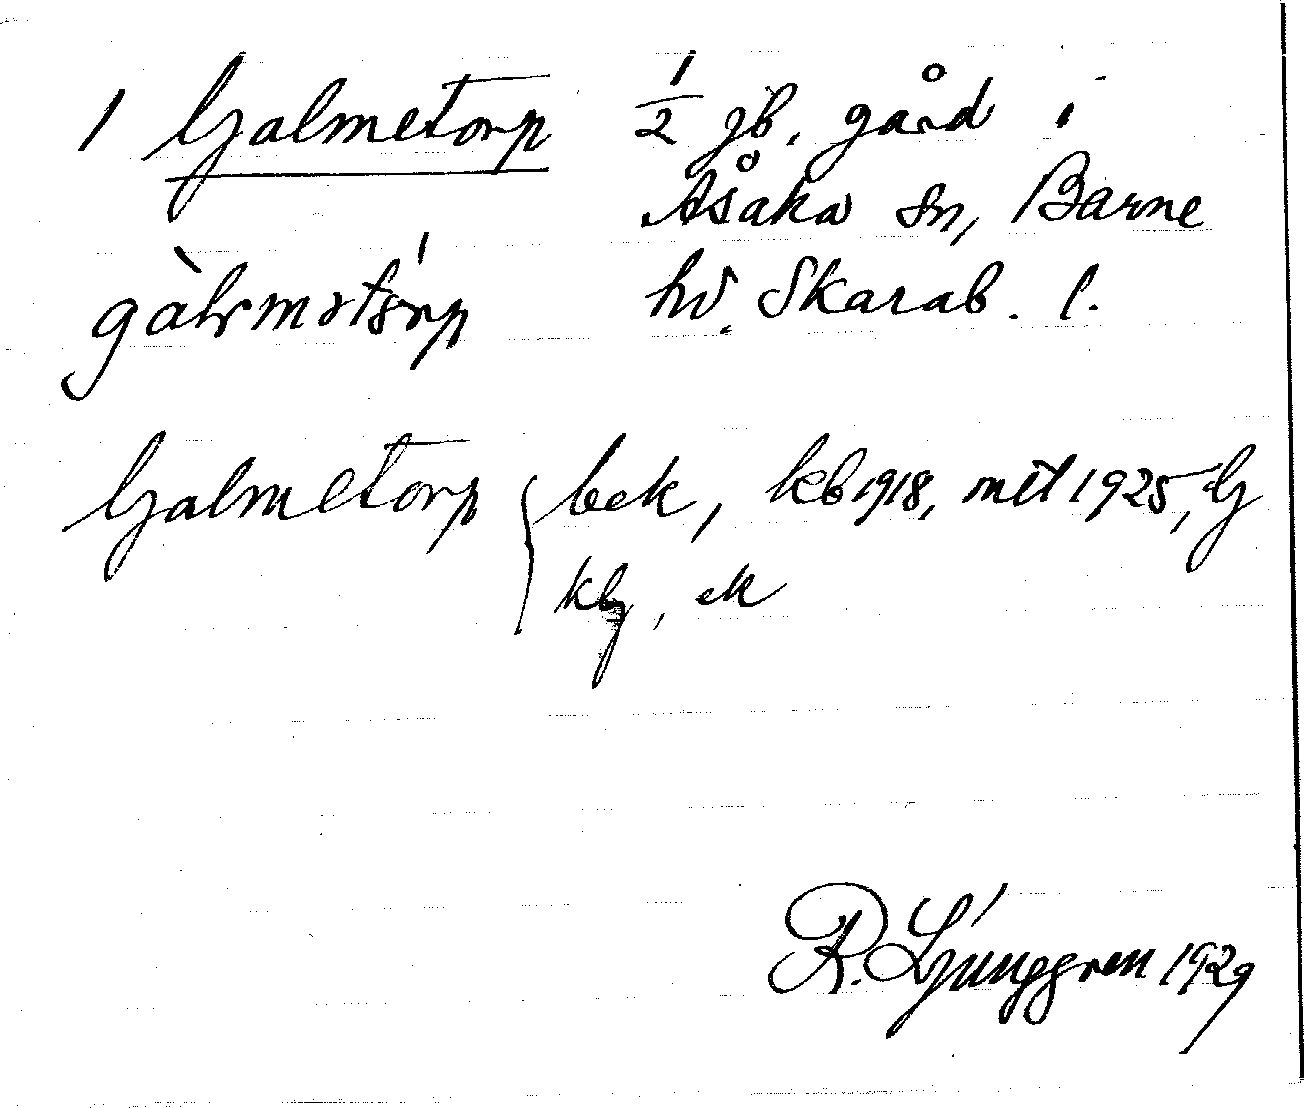 1 Galmetorp 1/2 jb. gård i
Åsaka sn, Barne
hd. Skarab. l.
Galmetorp { bek, kb 1918, mtl 1925, G
ek
R. Ljunggren 1929